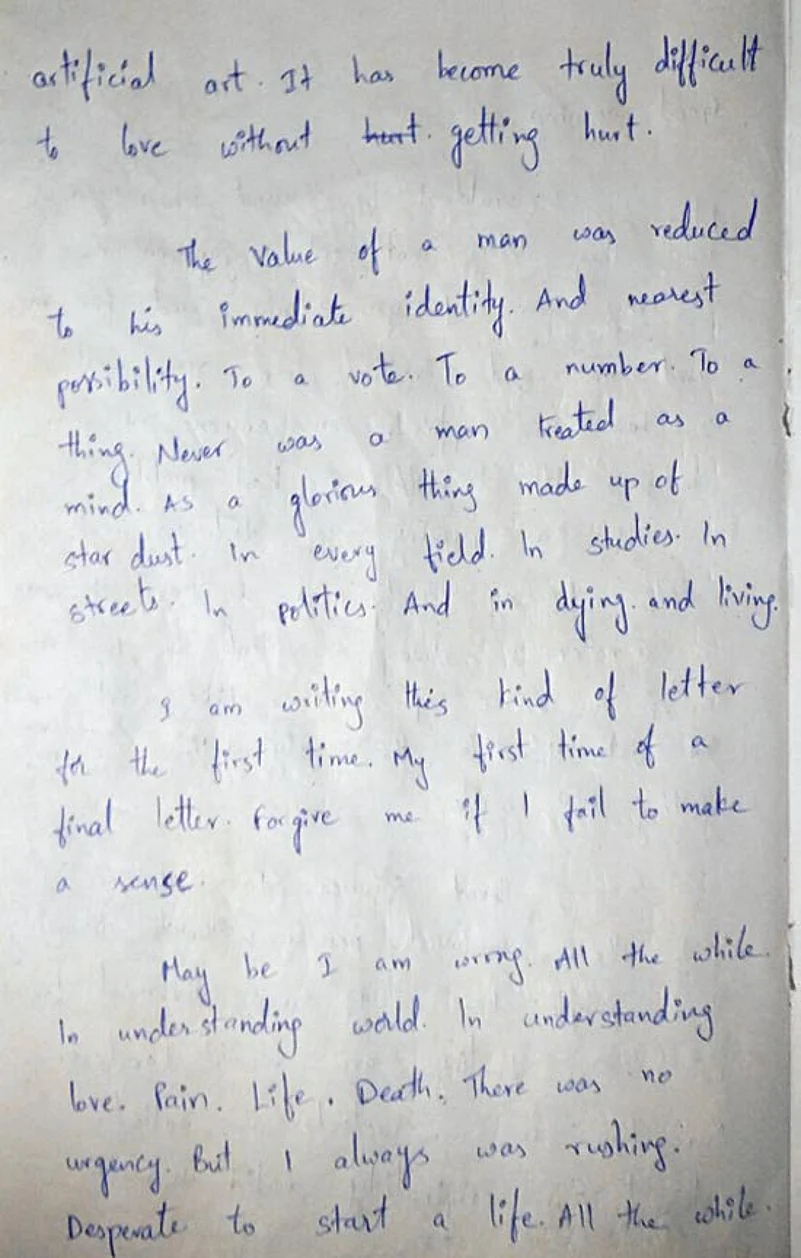 artificial art. It has become truly difficult
to love without hurt. getting hurt.
The value of a man was reduced
to his immediate identity. And nearest
possibility. To a vote. To a number. To a
thing. Never was a man treated as a
mind. As a glorious thing made up of
star dust. In every field. In studies. In
streets. In politics. And in dying. and living.
I am writing this kind of letter
for the first time. My first time of a
final letter. Forgive me if I fail to make
a sense.
May be I am wrong. All the while.
In understanding world. In understanding
love. Pain. Life. Death. There was no
urgency. But I always was rushing.
Desperate to start a life. All the while.